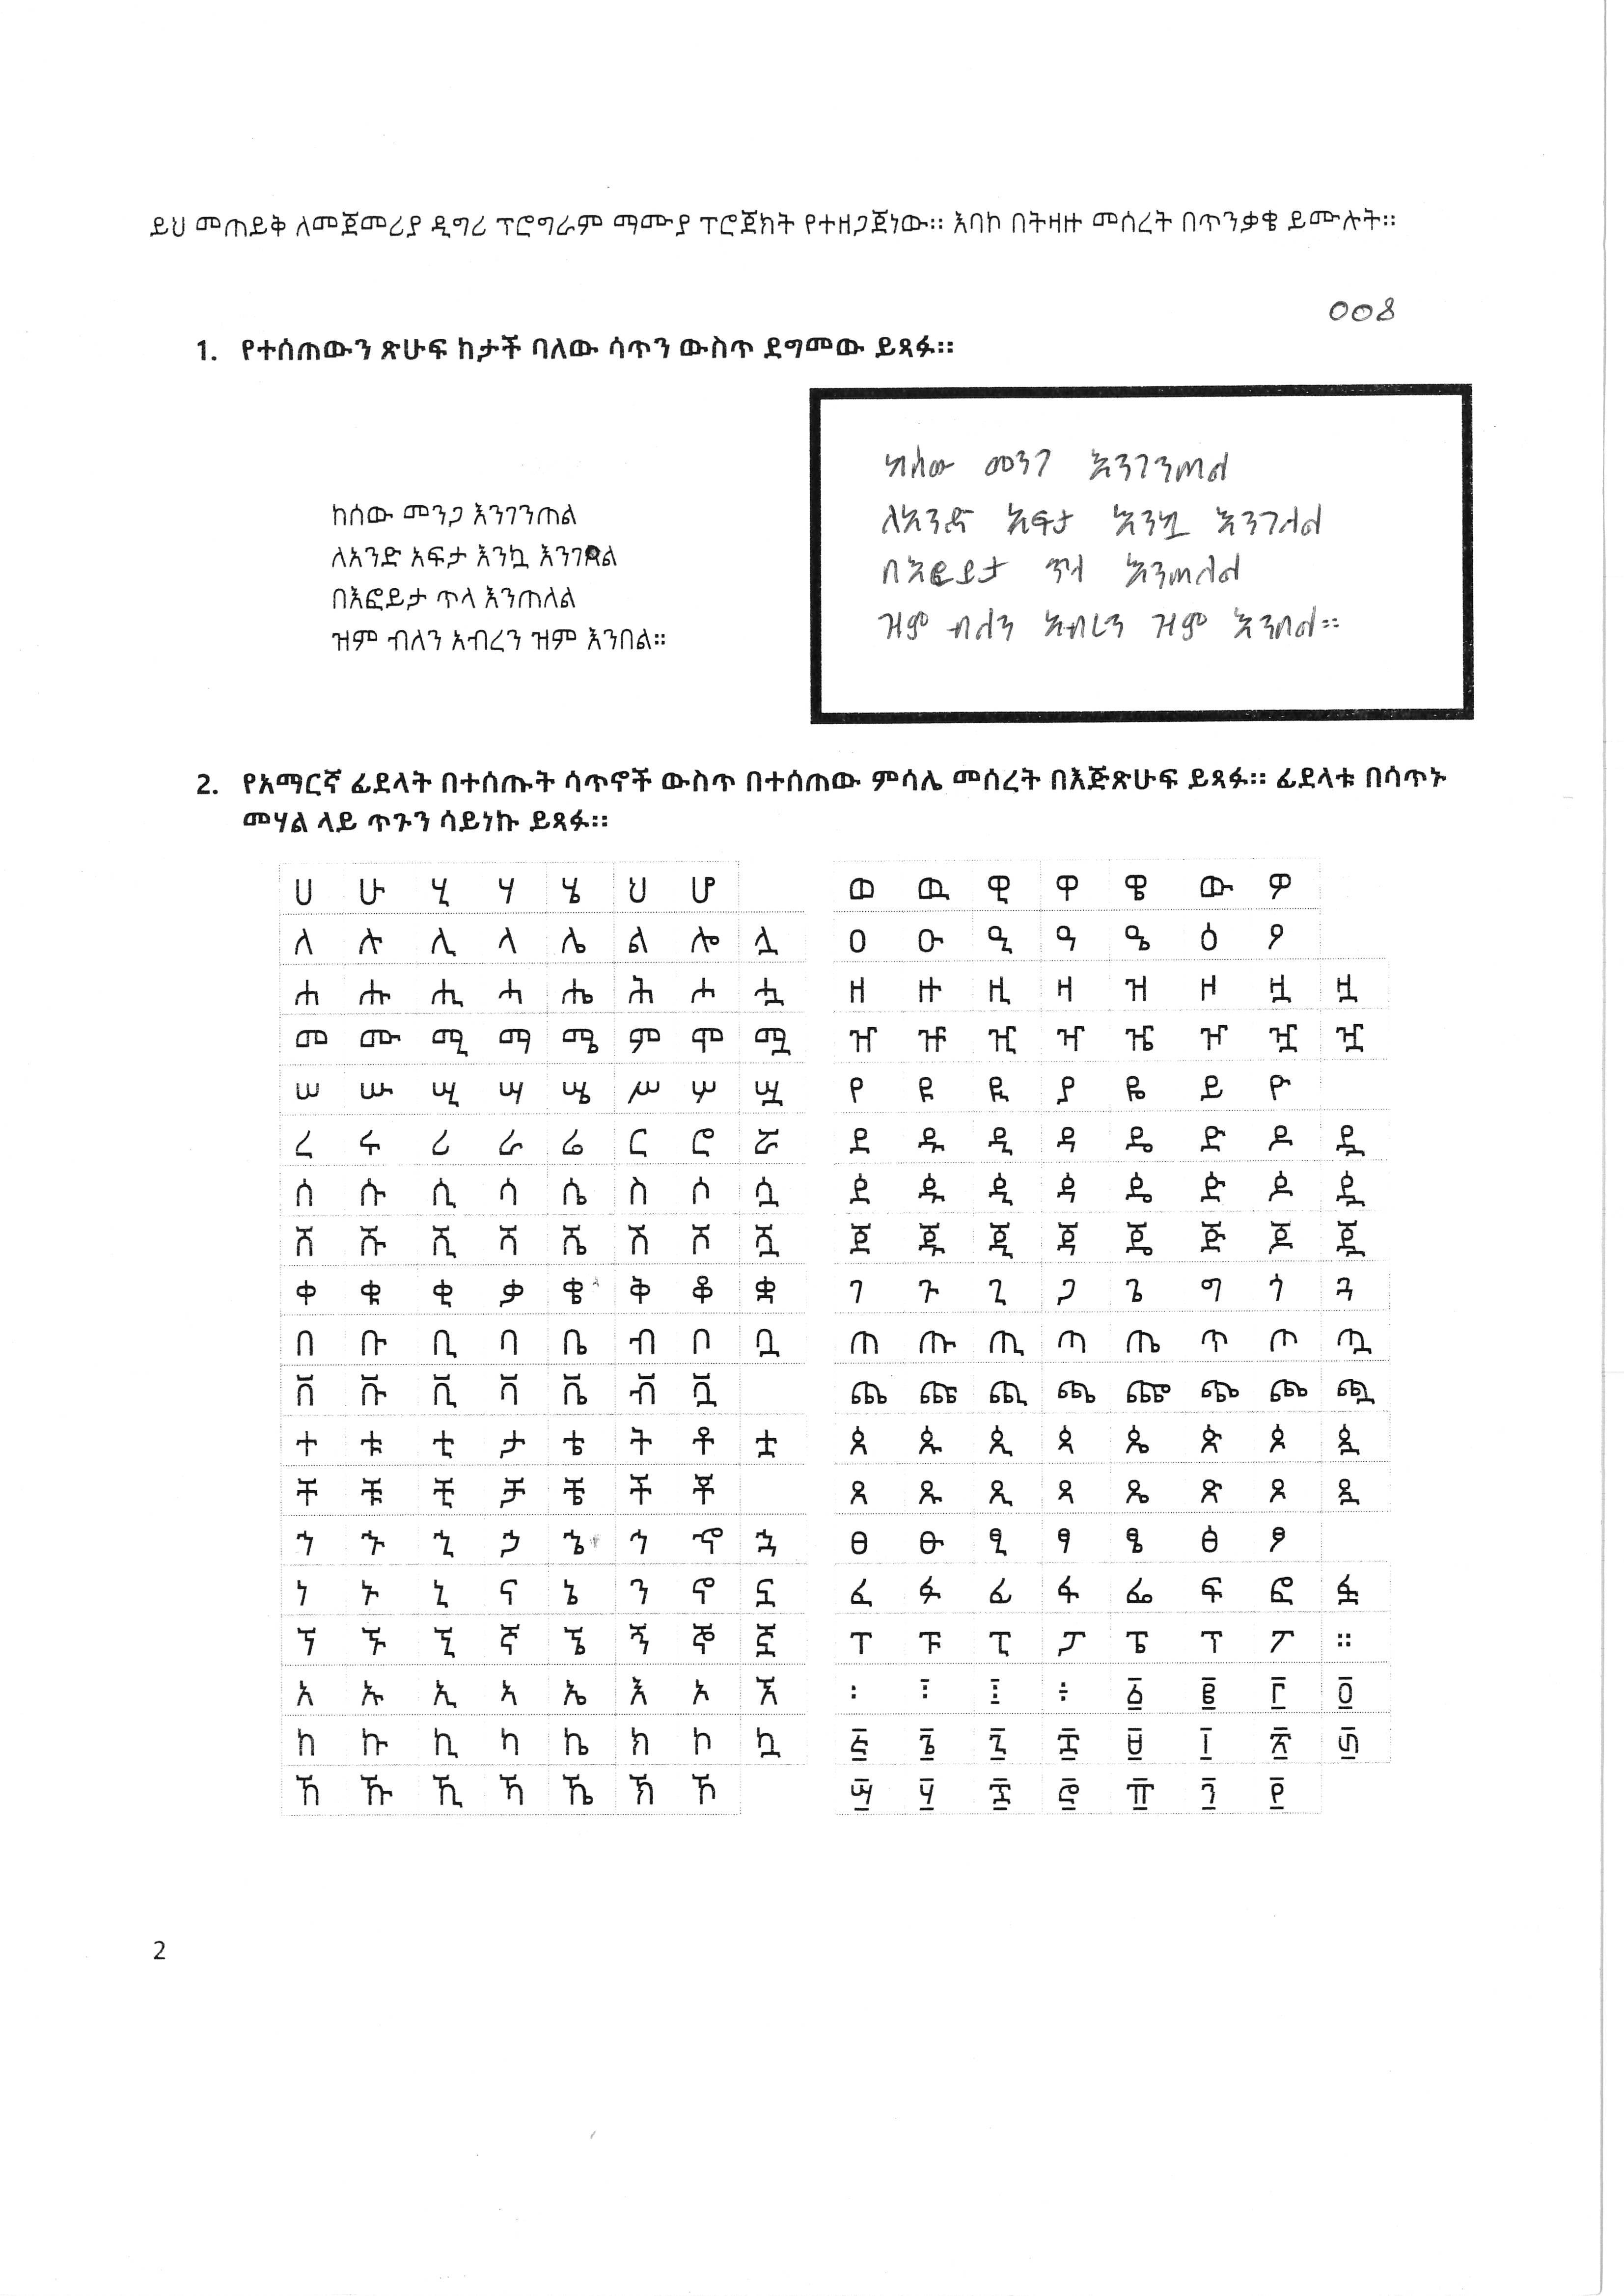 ይህ መጠይቅ ለመጀመሪያ ዲግሪ ፕሮግራም ማሙያ ፕሮጀክት የተዘጋጀነው። እባኮ በትዛዙ መሰረት በጥንቃቄ ይሙሉት።
008
1. የተሰጠውን ጽሁፍ ከታች ባለው ሳጥን ውስጥ ደግመው ይጻፉ።
ከሰው መንጋ እንገንጠል
ለአንድ አፍታ እንኳ
በእፎይታ ጥላ እንጠለል
ዝም ብለን አብረን ዝም እንበል።
ከሰው መንጋ እንገንጠል
ለአንድ አፍታ እንኳ እንገለል
በእፎይታ ጥላ እንጠለል
ዝም ብለን አብረን ዝም እንበል።
2. የአማርኛ ፊደላት በተሰጡት ሳጥኖች ውስጥ በተሰጠው ምሳሌ መሰረት በእጅጽሁፍ ይጻፉ። ፊደላቱ በሳጥኑ
መሃል ላይ ጥጉን ሳይነኩ ይጻፉ።
ሀ ሁ ሂ ሃ ሄ ህ ሆ
ለ ሉ ሊ ላ ሌ ል ሎ ሏ
ሐ ሑ ሒ ሓ ሔ ሕ ሖ ሗ
መ ሙ ሚ ማ ሜ ም ሞ ሟ
ሠ ሡ ሢ ሣ ሤ ሥ ሦ ሧ
ረ ሩ ሪ ራ ሬ ር ሮ ሯ
ሰ ሱ ሲ ሳ ሴ ስ ሶ ሷ
ሸ ሹ ሺ ሻ ሼ ሽ ሾ ሿ
ቀ ቁ ቂ ቃ ቄ ቅ ቆ ቋ
በ ቡ ቢ ባ ቤ ብ ቦ ቧ
ቨ ቩ ቪ ቫ ቬ ቭ ቯ
ተ ቱ ቲ ታ ቴ ት ቶ ቷ
ቸ ቹ ቺ ቻ ቼ ች ቾ
ኀ ኁ ኂ ኃ ኄ ኅ ኆ ኋ
ነ ኑ ኒ ና ኔ ን ኖ ኗ
ኘ ኙ ኚ ኛ ኜ ኝ ኞ ኟ
አ ኡ ኢ ኣ ኤ እ ኦ ኧ
ከ ኩ ኪ ካ ኬ ክ ኮ ኳ
ኸ ኹ ኺ ኻ ኼ ኽ ኾ
ወ ዉ ዊ ዋ ዌ ው ዎ
ዐ ዑ ዒ ዓ ዔ ዕ ዖ
ዘ ዙ ዚ ዛ ዝ ዞ ዟ ዟ
ዠ ዡ ዢ ዣ ዤ ዦ ዧ ዧ
የ ዩ ዪ ያ ዬ ይ ዮ
ደ ዱ ዲ ዳ ዴ ድ ዶ ዷ
ዸ ዹ ዺ ዻ ዼ ዽ ዾ ዿ
ጀ ጁ ጂ ጃ ጄ ጅ ጆ ጇ
ገ ጉ ጊ ጋ ጌ ግ ጎ ጓ
ጠ ጡ ጢ ጣ ጤ ጥ ጦ ጧ
ጨ ጩ ጪ ጫ ጬ ጭ ጮ ጯ
ጰ ጱ ጲ ጳ ጴ ጵ ጶ ጷ
ጸ ጹ ጺ ጻ ጼ ጽ ጾ ጿ
ፀ ፁ ፂ ፃ ፄ ፅ ፆ
ፈ ፉ ፊ ፋ ፌ ፍ ፎ ፏ
ፐ ፑ ፒ ፓ ፔ ፕ ፖ ።
፡ ፤ ፧ ፥ ፩ ፪ ፫ ፬
፭ ፮ ፯ ፰ ፱ ፲ ፳ ፴
፵ ፶ ፷ ፸ ፹ ፺ ፻
2